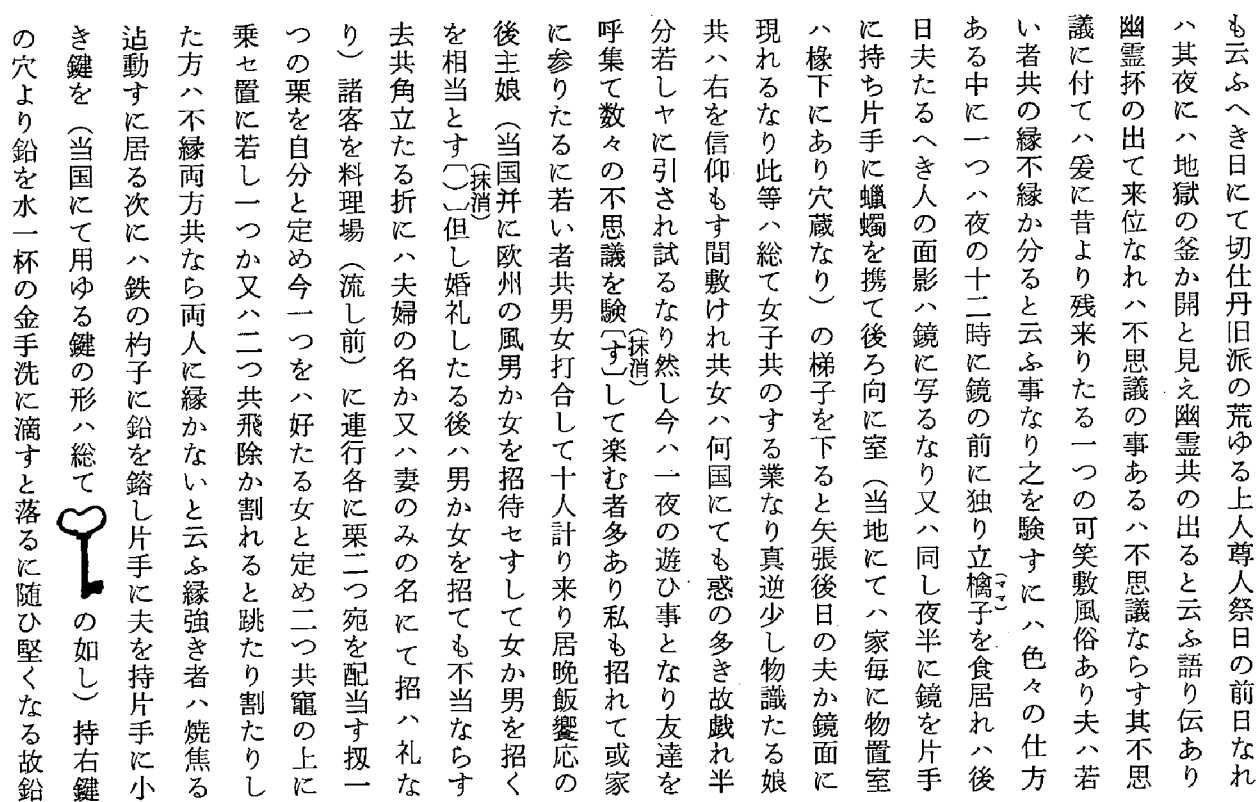 も云ふへき日にて切仕丹旧派の荒ゆる上人尊人祭日の前日なれ
ハ其夜にハ地獄の釜か開と見え幽霊共の出ると云ふ語り伝あり
幽霊抔の出て来位なれハ不思議の事あるハ不思議ならす其不思
議に付てハ爰に昔より残来りたる一つの可笑敷風俗あり夫ハ若
い者共の縁不縁か分ると云ふ事なり之を験すにハ色々の仕方
ある中に一つハ夜の十二時に鏡の前に独り立檎子(ママ)を食居れハ後
日夫たるへき人の面影ハ鏡に写るなり又ハ同し夜半に鏡を片手
に持ち片手に蠟蠋を携て後ろ向に室（当地にてハ家毎に物置室
ハ椽下にあり穴蔵なり）の梯子を下ると矢張後日の夫か鏡面に
現れるなり此等ハ総て女子共のする業なり真逆少し物識たる娘
共ハ右を信仰もす間敷けれ共女ハ何国にても惑の多き故戯れ半
分若しヤに引され試るなり然し今ハ一夜の遊ひ事となり友達を
呼集て数々の不思議を験〔す〕(抹消)して楽む者多あり私も招れて或家
に参りたるに若い者共男女打合して十人計り来り居晩飯饗応の
後主娘（当国幷に欧州の風男か女を招待セすして女か男を招く
を相当とす〔）〕(抹消)但し婚礼したる後ハ男か女を招ても不当ならす
去共角立たる折にハ夫婦の名か又ハ妻のみの名にて招ハ礼な
り）諸客を料理場（流し前）に連行各に栗二つ宛を配当す扨一
つの栗を自分と定め今一つをハ好たる女と定め二つ共竈の上に
乗セ置に若し一つか又ハ二つ共飛除か割れると跳たり割たりし
た方ハ不縁両方共なら両人に縁かないと云ふ縁強き者ハ焼焦る
迠動すに居る次にハ鉄の杓子に鉛を鎔し片手に夫を持片手に小
き鍵を（当国にて用ゆる鍵の形ハ総ての如し）持右鍵
の穴より鉛を水一杯の金手洗に滴すと落るに随ひ堅くなる故鉛